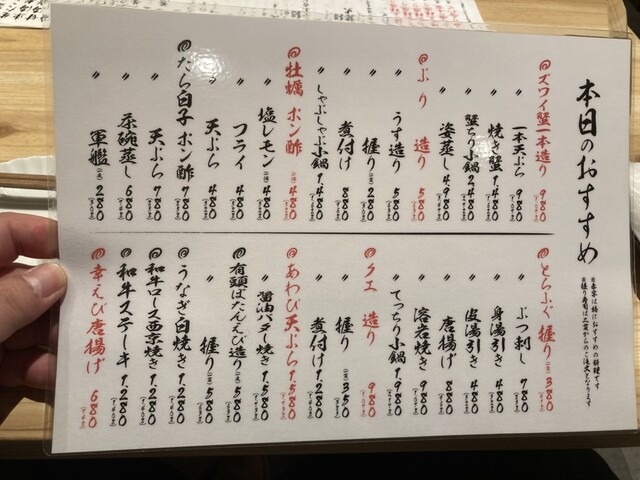 本日のおすすめ
※赤字は特におすすめの料理です
ズワイ蟹一本造り 980
〃 一本天ぷら 980
〃 焼き蟹 1,480
〃 蟹ちり小鍋 2,480
〃 姿蒸し 4,980
ぶり 造り 580
〃 うす造り 580
〃 握り(二貫) 280
〃 煮付け 880
〃 しゃぶしゃぶ小鍋 1,480
牡蠣 ポン酢(二個) 480
〃 塩レモン(二個) 480
〃 フライ 480
〃 天ぷら 480
たら白子 ポン酢 780
〃 天ぷら 780
〃 茶碗蒸し 680
〃 軍艦(二貫) 280
とらふぐ 握り(二貫) 380
〃 ぶつ刺し 780
〃 身湯引き 480
〃 皮湯引き 480
〃 唐揚げ 880
〃 溶岩焼き 980
〃 てっちり小鍋 1,980
クエ 造り 980
〃 握り(二貫) 350
〃 煮付け 1,280
あわび天ぷら 1,580
〃 醤油バター焼き 1,580
有頭ぼたんえび造り(二尾) 580
〃 握り(二貫) 580
うなぎ白焼き 1,280
和牛ロース西京焼き 1,280
和牛ステーキ 1,280
幸えび唐揚げ 680